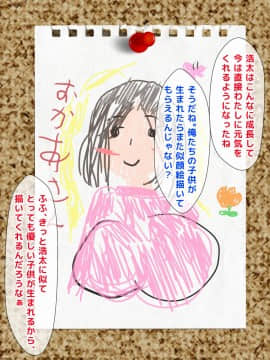 浩太はこんなに成長して
今は直接わたしに元気を
くれるようになったね
そうだね。俺たちの子供が
生まれたらまた似顔絵描いて
もらえるんじゃない?
ふふ、きっと浩太に似て
とっても優しい子供が生まれるから、
描いてくれるんだろうなぁ
おかあさん